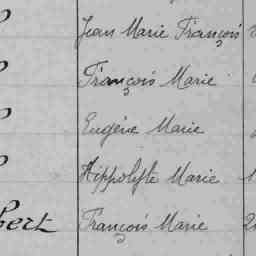 Jean Marie François
François Marie
Eugène Marie
Hippolyte Marie
bert François Marie